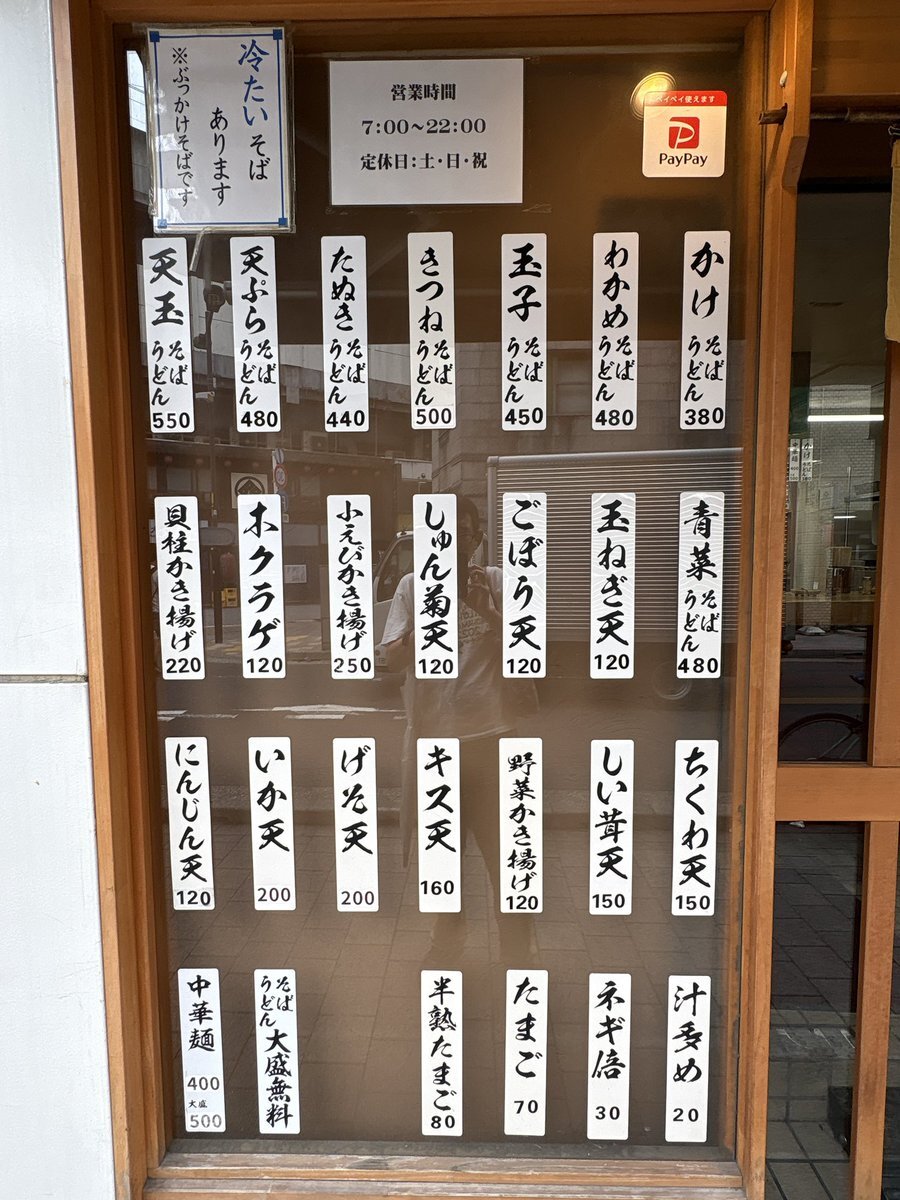 冷たいそば
あります
※ぶっかけそばです
営業時間
7:00〜22:00
定休日:土・日・祝
ペイペイ使えます
PayPay
かけ そば うどん 380
わかめ そば うどん 480
玉子 そば うどん 450
きつね そば うどん 500
たぬき そば うどん 440
天ぷら そば うどん 480
天玉 そば うどん 550
青菜 そば うどん 480
玉ねぎ天 120
ごぼう天 120
しゅん菊天 120
小えびかき揚げ 250
ホクラゲ 120
貝柱かき揚げ 220
ちくわ天 150
しい茸天 150
野菜かき揚げ 120
キス天 160
げそ天 200
いか天 200
にんじん天 120
汁多め 20
ネギ倍 30
たまご 70
半熟たまご 80
そば うどん 大盛無料
中華麺 400
大盛 500